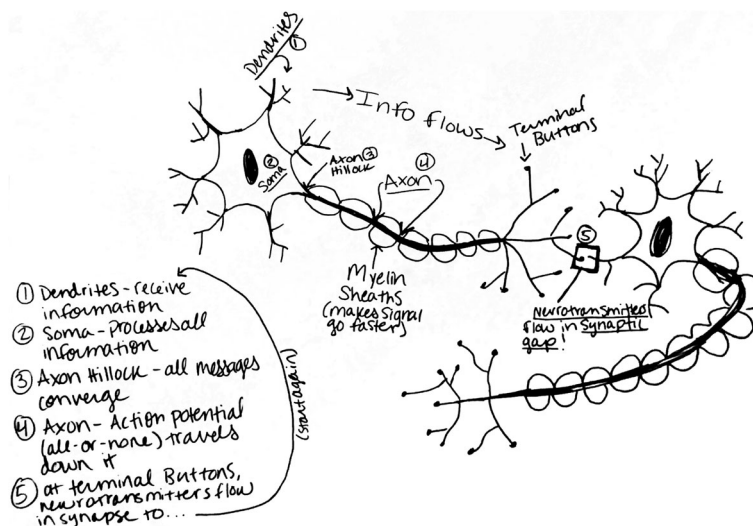 Dendrites
①
Info flows
Terminal
Buttons
②
Soma
Axon ③
Hillock
④
Axon
Myelin
Sheaths
(makes signal
go faster)
⑤
Neurotransmitters
flow in synaptic
gap!
① Dendrites - receive
information
② Soma - Processes all
information
③ Axon Hillock - all messages
converge
④ Axon - Action potential
(all-or-none) travels
down it
⑤ at terminal Buttons,
neurotransmitters flow
in synapse to...
(start again)